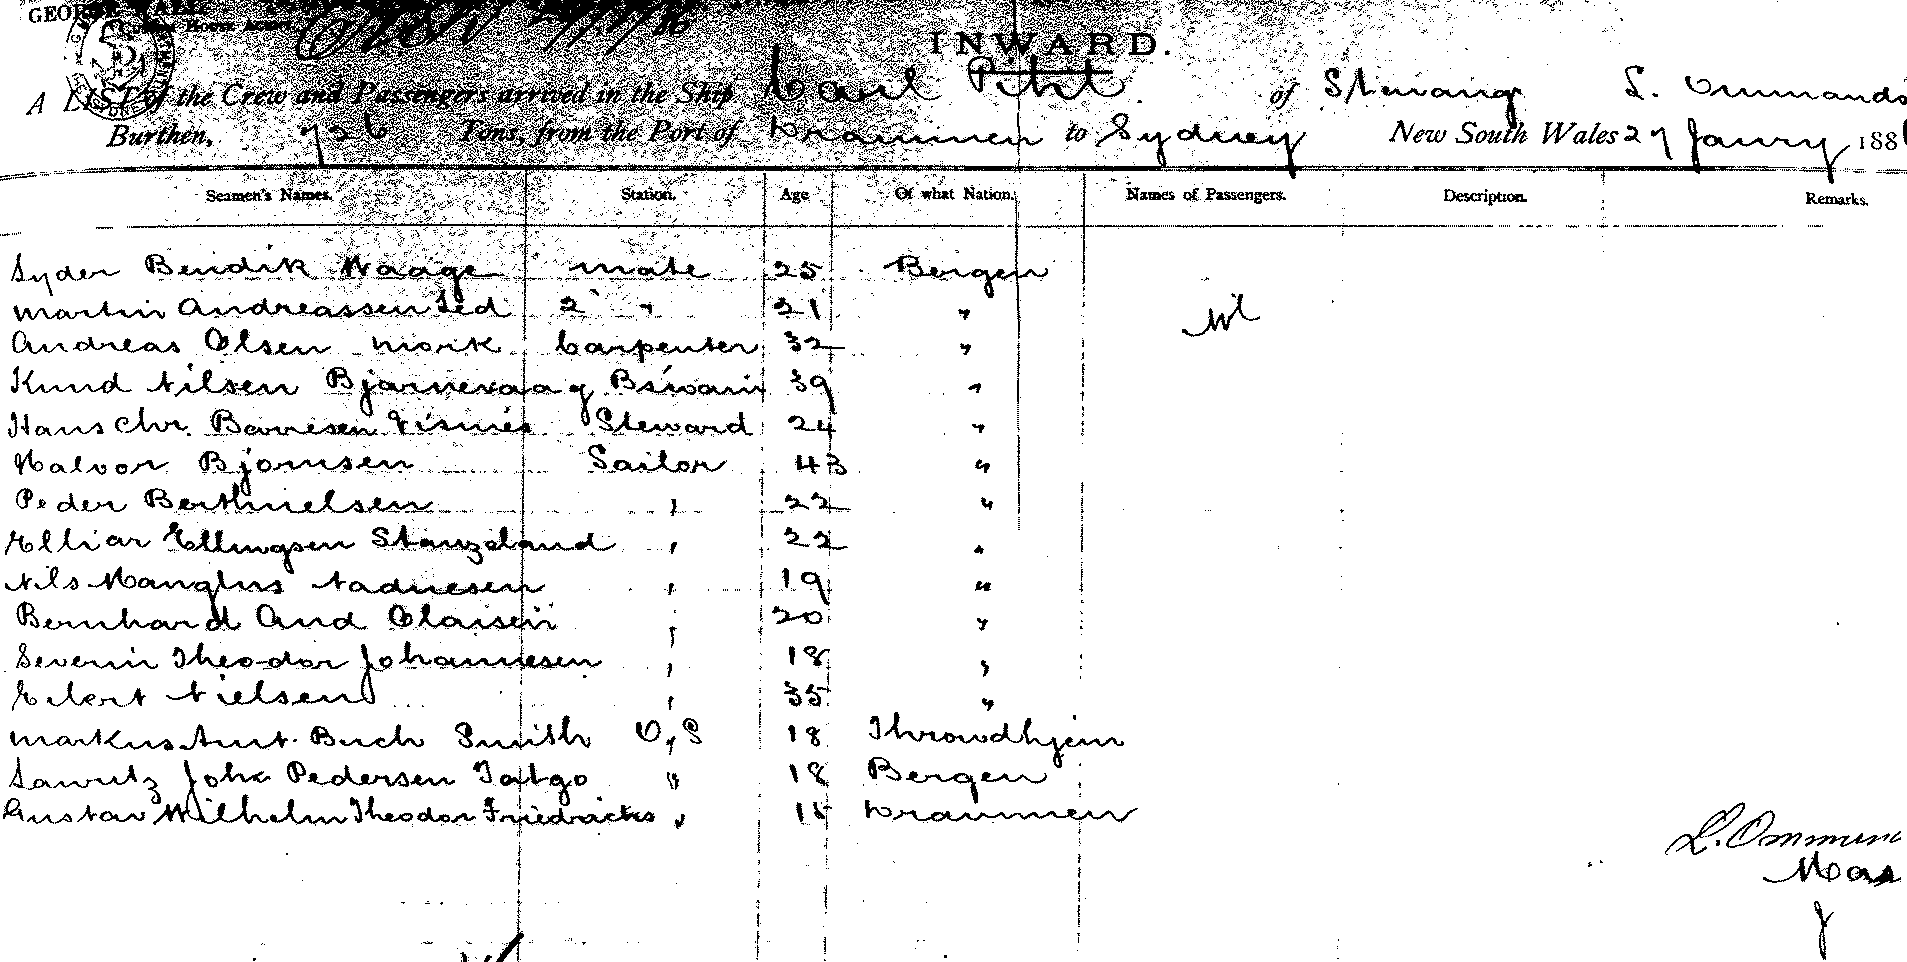 GEORGE
INWARD.
A LIST of the Crew and Passengers arrived in the Ship Carl Pihl of Stavang L. Ommands
Burthen, 726 Tons, from the Port of Drammen to Sydney New South Wales 27 Janry 188
Seamen's Names. Station. Age Of what Nation. Names of Passengers. Description. Remarks.
Syder Bendik Waage mate 25 Bergen
Martin Andreassen Led 2 " 21 " Nil
Andreas Olsen Mork Carpenter 32 "
Knud Nilsen Bjornevaag Bswain 39 "
Hans Chr. Steward 24 "
Halvor Bjornsen Sailor 43 "
Peder Berthnelsen " 22 "
Ellingsen Stangeland " 22 "
Nils Manglus " 19 "
Bernhard And Olaisen " 20 "
Severin Theodor Johannesen " 18 "
Eilert Nielsen " 35 "
Markus Ant. Buch Smith O,S 18 Throwdhjem
Lauritz Joh Pedersen Tatgo " 18 Bergen
Gustav Wilhelm Theodor Friedricks " Drammen
L. Ommun
Mas